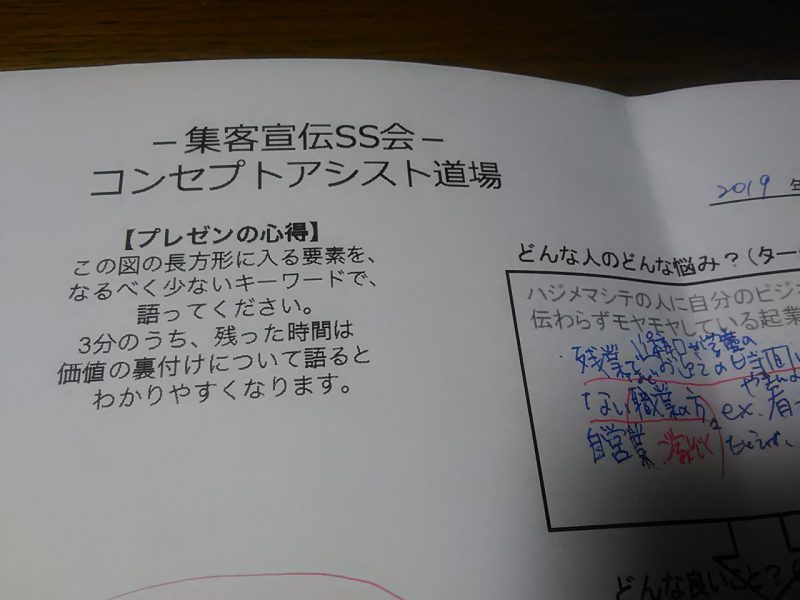 －集客宣伝SS会－
コンセプトアシスト道場
【プレゼンの心得】
この図の長方形に入る要素を、
なるべく少ないキーワードで、
語ってください。
3分のうち、残った時間は
価値の裏付けについて語ると
わかりやすくなります。
2019 年
どんな人のどんな悩み？（ター
ハジメマシテの人に自分のビジ
伝わらずモヤモヤしている起業
残業
ない職業の方。ex.看
自営業 ご家ぞく
どんな良いこと？（